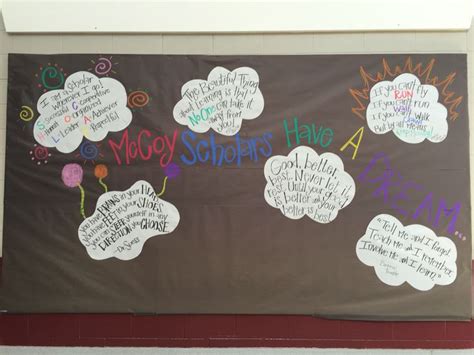 I am a scholar
wherever I go!
Successful
Cooperative
Organized
Leader
Achiever
Respectful
The Beautiful Thing
about Learning is that
NO One can take it
away from
you!
If you can't fly
RUN
if you can't run
WALK
But by all means
McCoy Scholars Have A DREAM...
Good, better,
best. Never let it
rest. Until your good
is better and your
better is best.
You have BRAINS in your HEAD
You have FEET in your SHOES
You can STEER yourself in any
DIRECTION you CHOOSE
-Dr. Seuss
"Tell me and I forget,
Teach me and I remember,
Involve me and I learn."